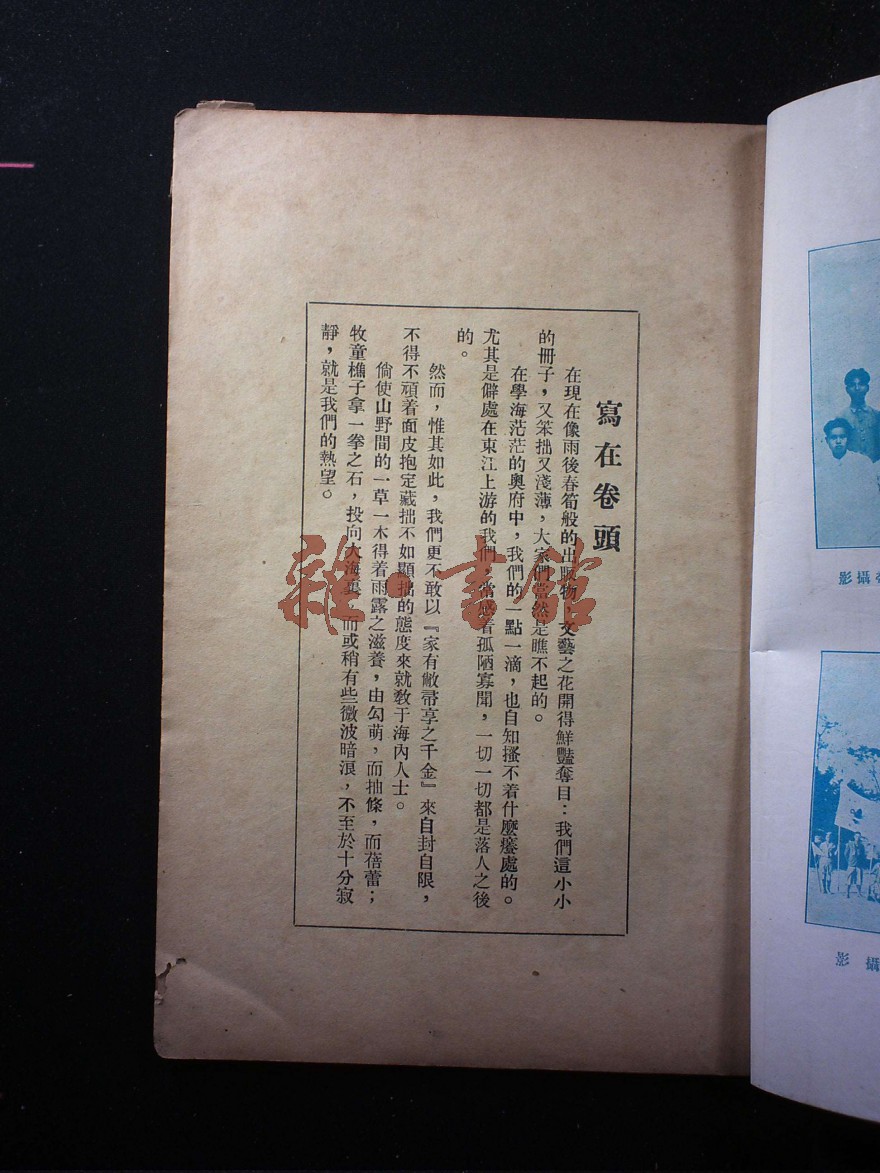 寫在卷頭
在現在像雨後春筍般的出版物，文藝之花開得鮮豔奪目：我們這小小
的冊子，又笨拙又淺薄，大家們當然是瞧不起的。
在學海茫茫的奧府中，我們的一點一滴，也自知搔不着什麼癢處的。
尤其是僻處在東江上游的我們，常感着孤陋寡聞，一切一切都是落人之後
的。
然而，惟其如此，我們更不敢以『家有敝帚享之千金』來自封自限，
不得不頑着面皮抱定藏拙不如顯拙的態度來就教于海內人士。
倘使山野間的一草一木得着雨露之滋養，由勾萌，而抽條，而蓓蕾；
牧童樵子拿一拳之石，投向大海裏，而或稍有些微波暗浪，不至於十分寂
靜，就是我們的熱望。
雜·書館
攝影
攝影